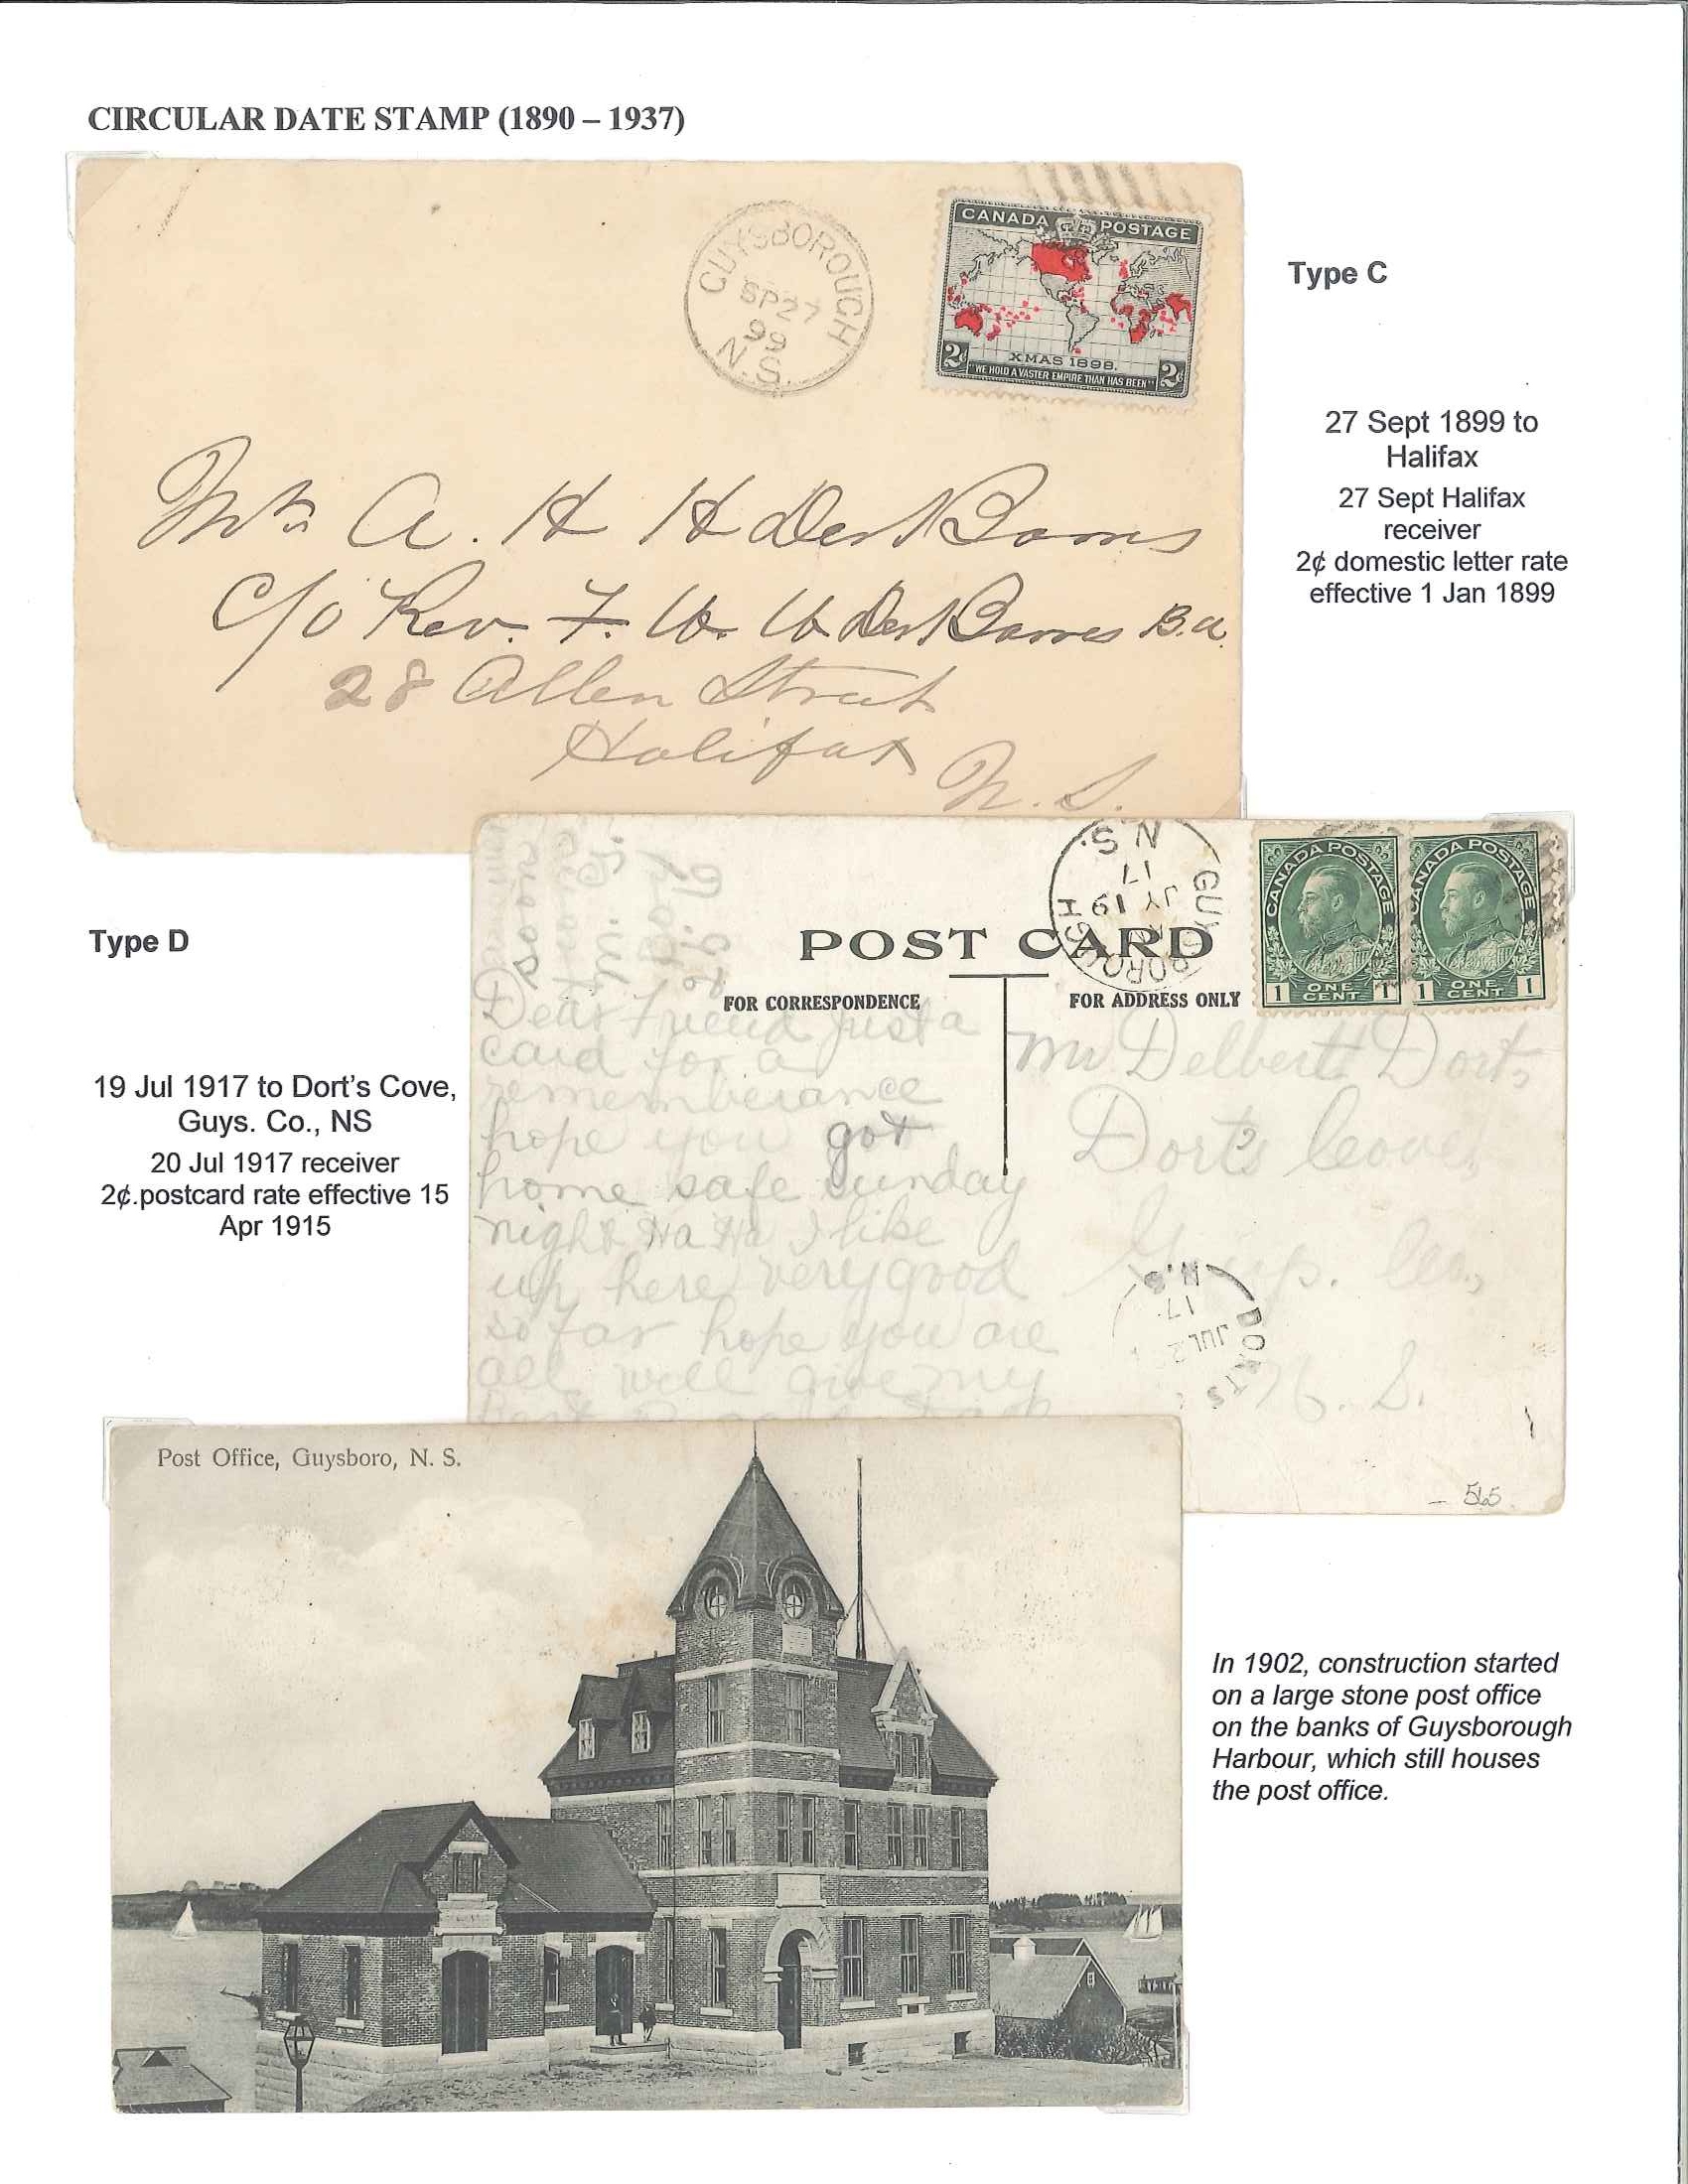 CIRCULAR DATE STAMP (1890 – 1937)
GUYSBOROUGH
SP 27
99
N.S.
CANADA POSTAGE
XMAS 1898.
2¢ "WE HOLD A VASTER EMPIRE THAN HAS BEEN" 2¢
Type C
27 Sept 1899 to
Halifax
27 Sept Halifax
receiver
2¢ domestic letter rate
effective 1 Jan 1899
Mrs A. H H DesBarres
c/o Rev. F. W. W DesBarres B.A.
28 Allen Street
Halifax
N. S.
Type D
19 Jul 1917 to Dort's Cove,
Guys. Co., NS
20 Jul 1917 receiver
2¢.postcard rate effective 15
Apr 1915
POST CARD
FOR CORRESPONDENCE
FOR ADDRESS ONLY
GUYSBOROUGH
JY 19
17
N.S.
CANADA POSTAGE
1 ONE CENT 1
CANADA POSTAGE
1 ONE CENT 1
Dear Friend Just a
card for a
rememberance
hope you got
home safe Sunday
night Ha Ha I like
up here very good
so far hope you are
all well give my
Mr Delbert Dort,
Dort's Coove,
Guys. Co.,
N. S.
DORTS
JUL 2
17
N.S.
565
Post Office, Guysboro, N. S.
In 1902, construction started
on a large stone post office
on the banks of Guysborough
Harbour, which still houses
the post office.